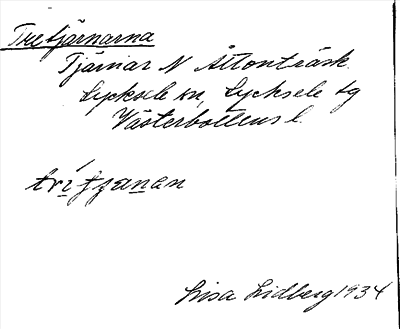 Tretjärnarna
Tjärnar N Åttonträsk
Lycksele sn, Lycksele lg
Västerbottens l.
tri tjanan
Lisa Lidberg 1934